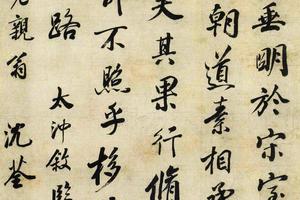 垂明於宋室
朝道素相承
矣其果行脩
不照乎移
路太沖敘
親翁沈荃